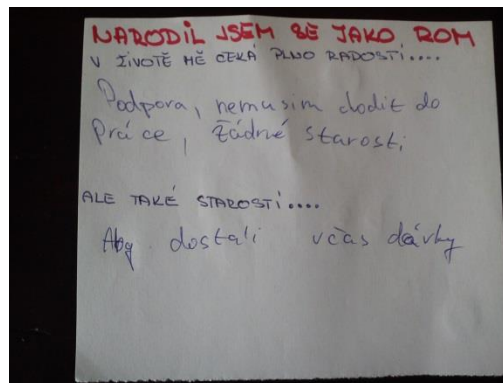 NARODIL JSEM SE JAKO ROM
V ŽIVOTĚ MĚ ČEKÁ PLNO RADOSTÍ....
Podpora, nemusim chodit do
Práce, žádné starosti
ALE TAKÉ STAROSTÍ....
Aby dostali včas dávky